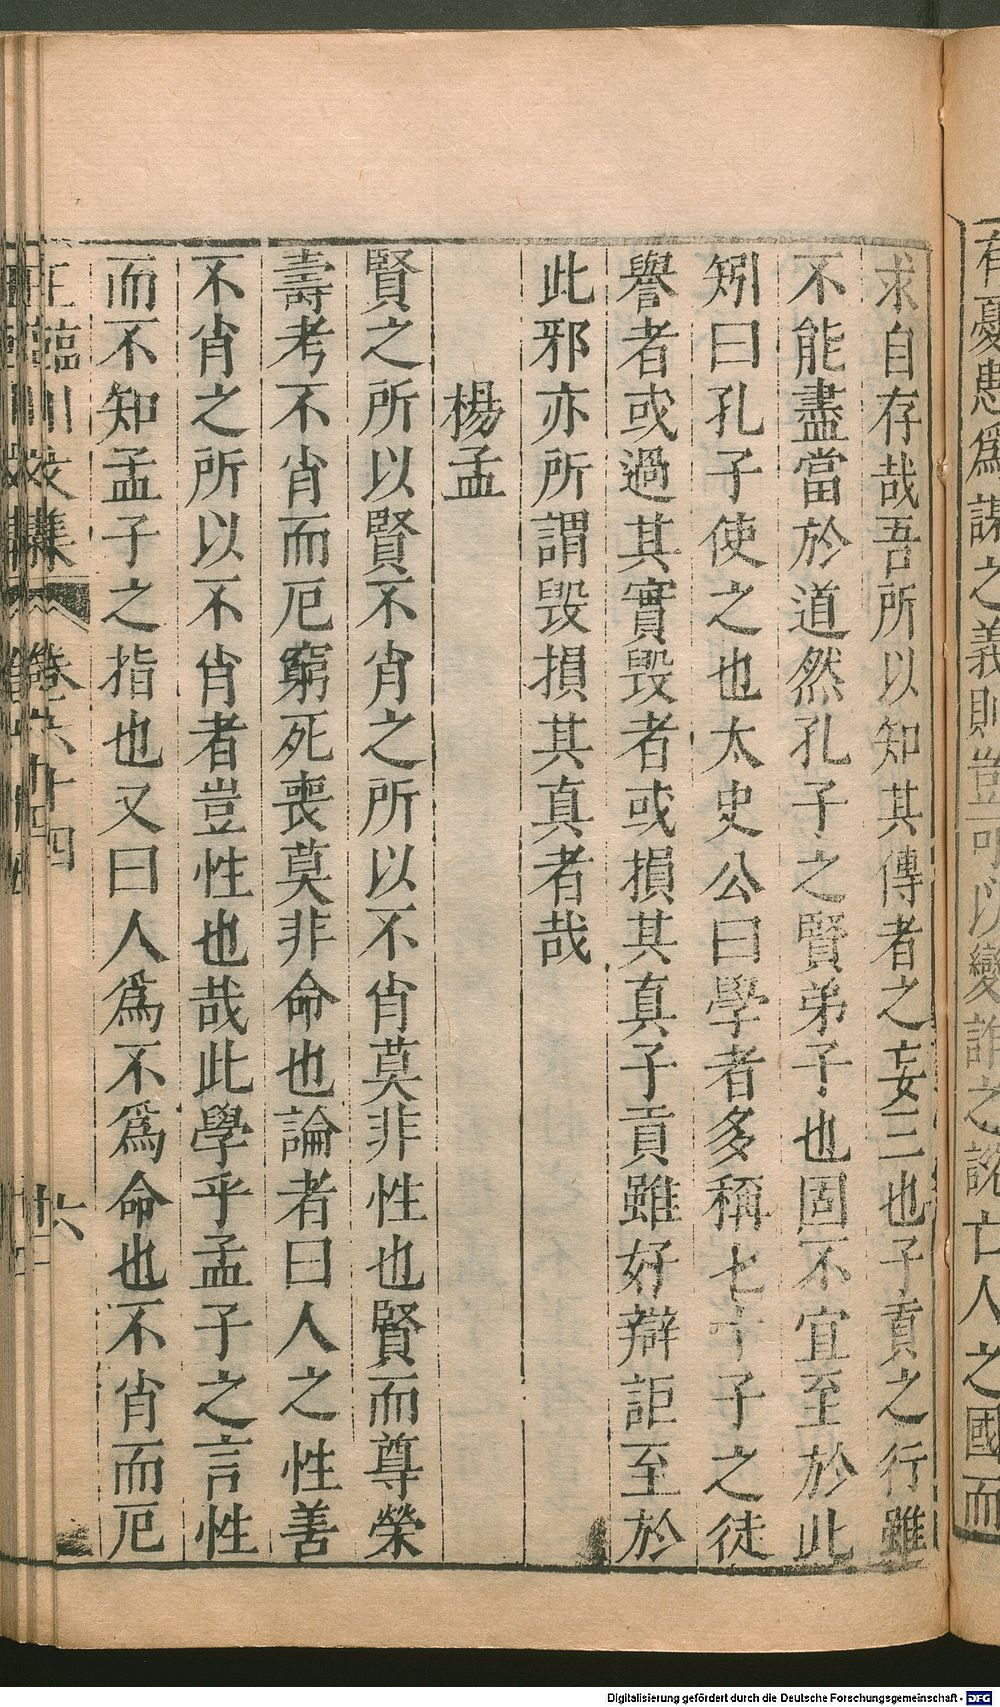 有憂患爲謀之義則豈可以變詐之說亡人之國而
求自存哉吾所以知其傳者之妄三也子貢之行雖
不能盡當於道然孔子之賢弟子也固不宜至於此
矧曰孔子使之也太史公曰學者多稱七十子之徒
譽者或過其實毀者或損其真子貢雖好辯詎至於
此邪亦所謂毀損其真者哉
楊孟
賢之所以賢不肖之所以不肖莫非性也賢而尊榮
壽考不肖而厄窮死喪莫非命也論者曰人之性善
不肖之所以不肖者豈性也哉此學乎孟子之言性
而不知孟子之指也又曰人爲不爲命也不肖而厄
王臨川文集 卷六十四 六
Digitalisierung gefördert durch die Deutsche Forschungsgemeinschaft - DFG